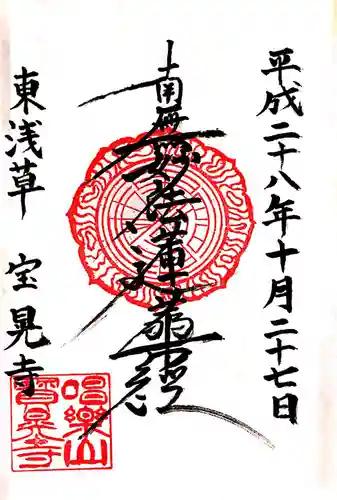 平成二十八年十月二十七日
南無妙法蓮華經
東浅草 宝晃寺
唱樂山